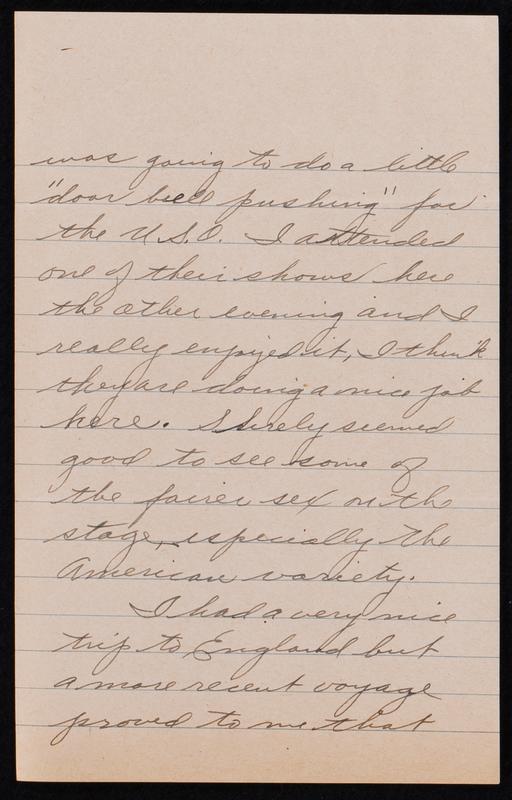 was going to do a little
"door bell pushing" for
the U.S.O. I attended
one of their shows here
the other evening and I
really enjoyed it, I think
they are doing a nice job
here. Surely seemed
good to see some of
the fairer sex on the
stage, especially the
American variety.
I had a very nice
trip to England but
a more recent voyage
proved to me that